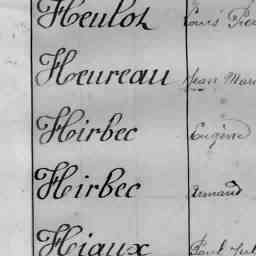 Heulot Louis
Heureau Jean Mari
Hirbec Eugène
Hirbec Armand
Hiaux Paul